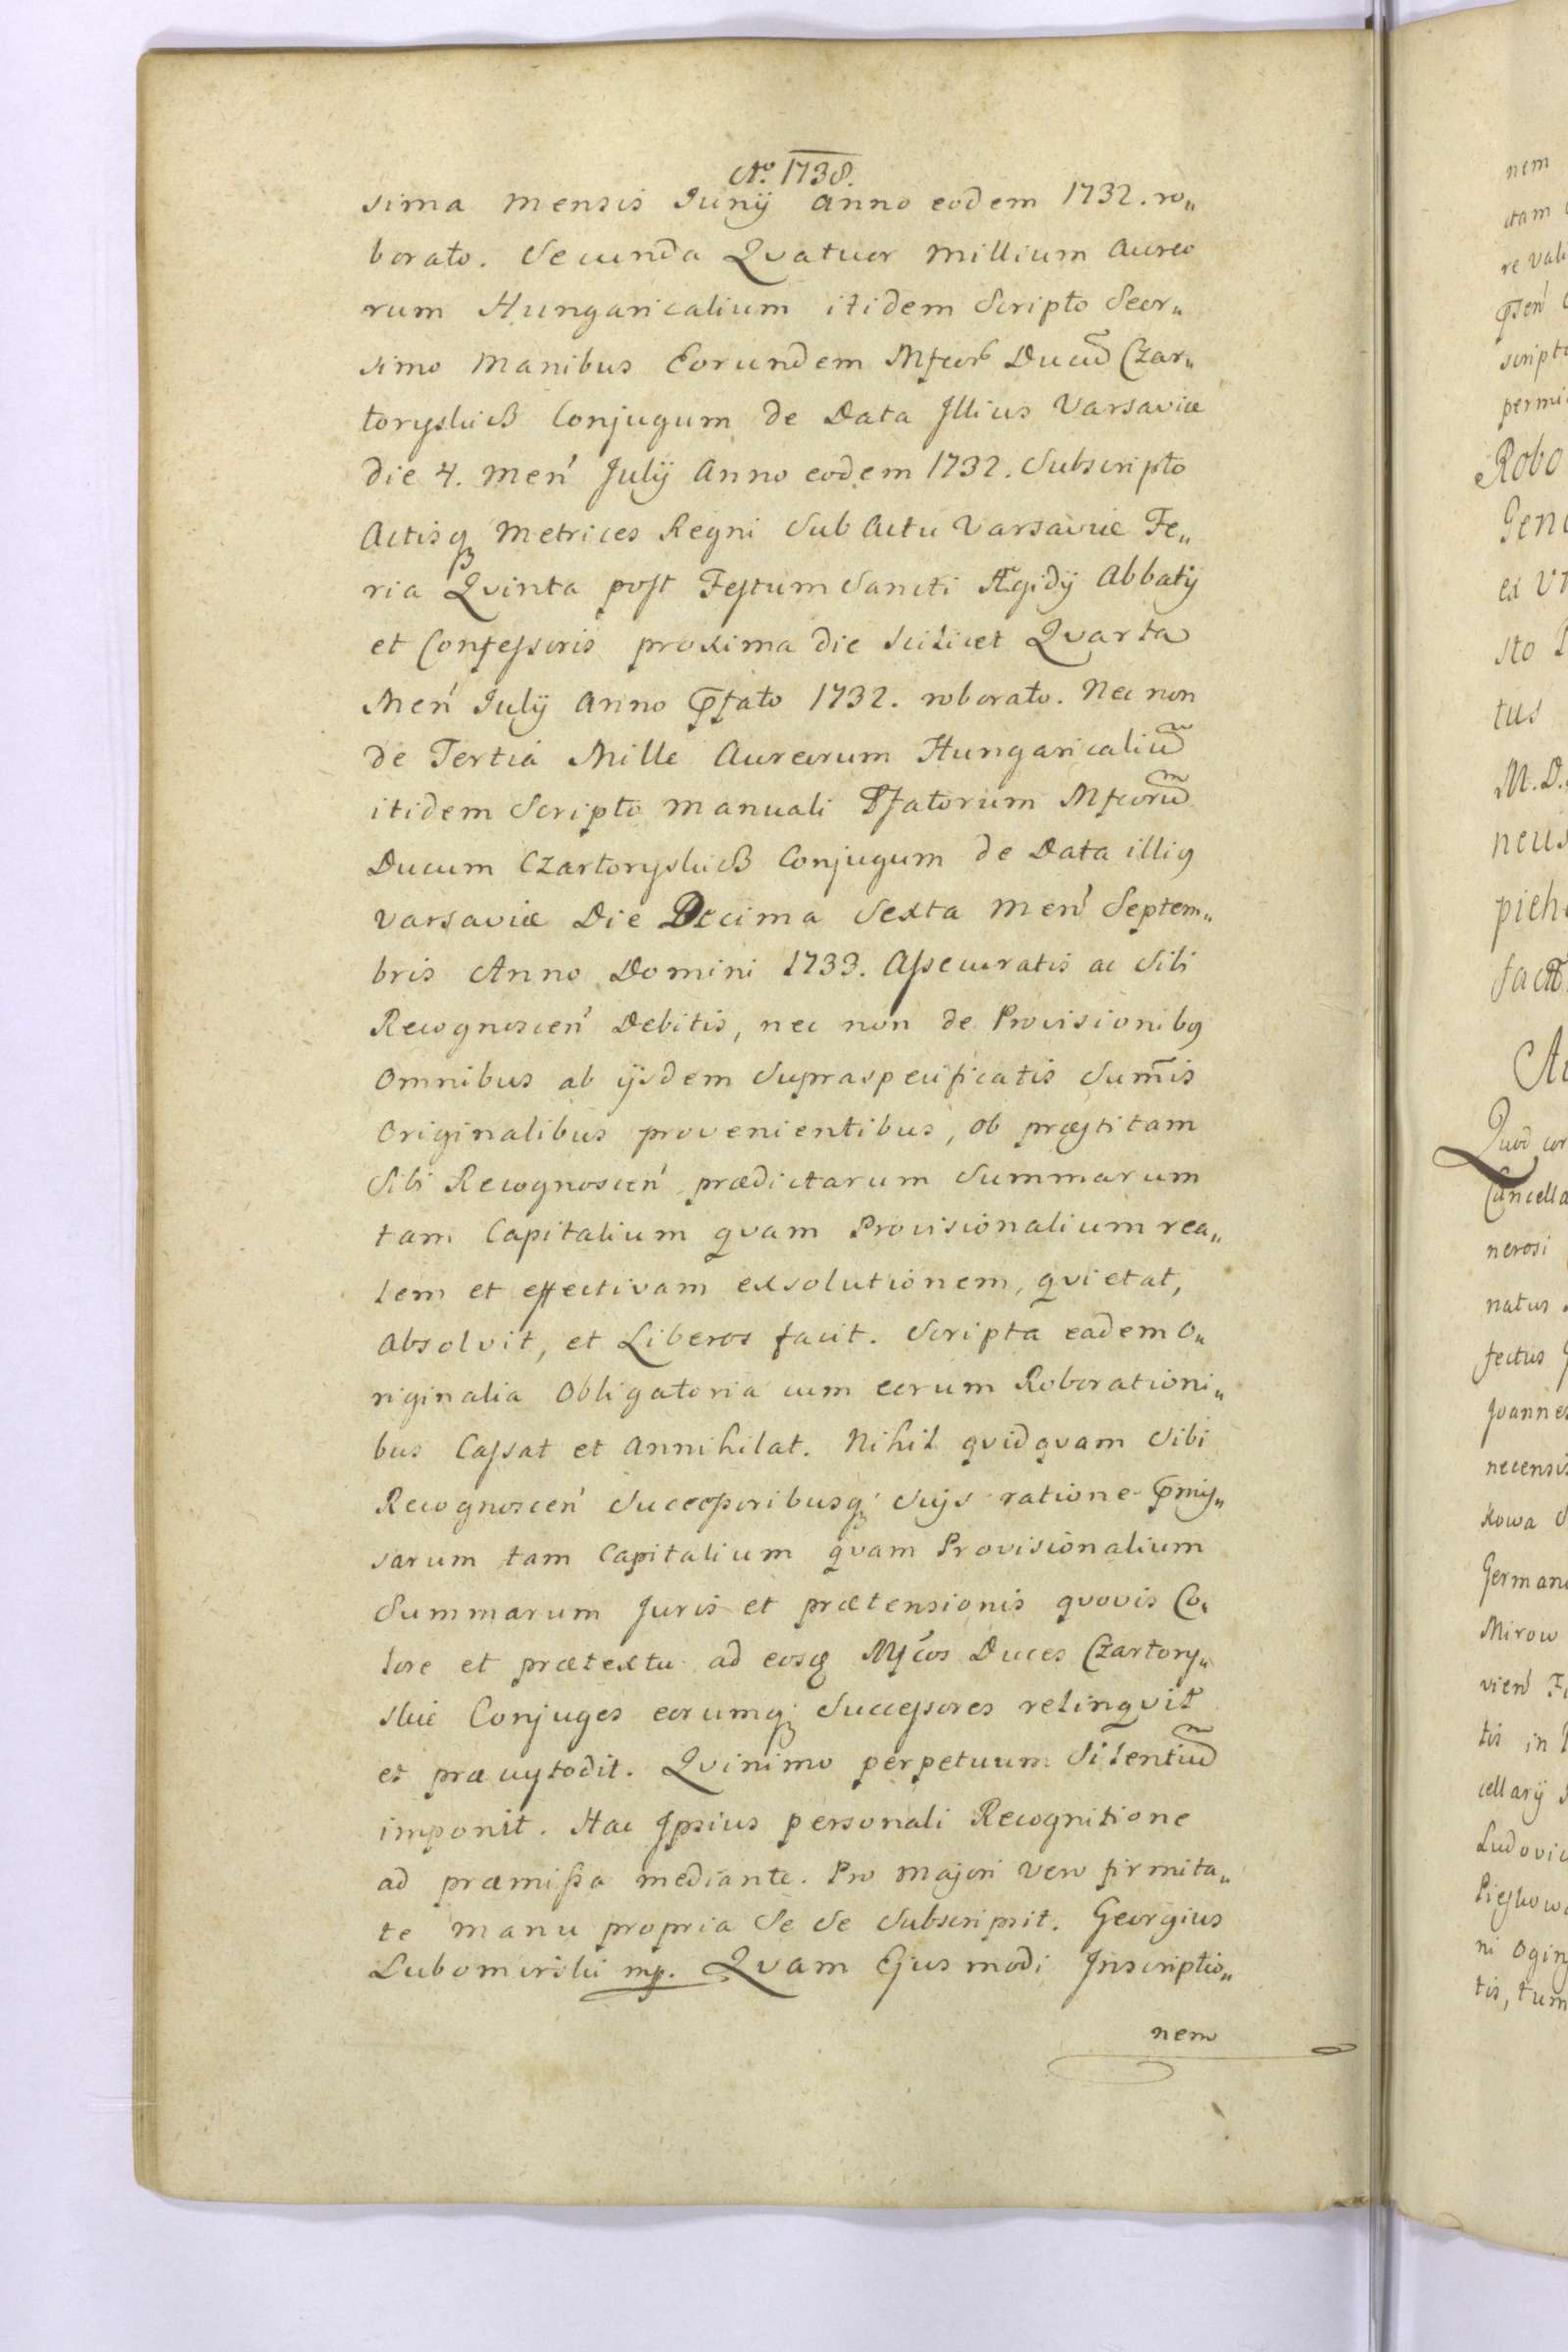 Ao. 1738.
sima mensis Junÿ anno eodem 1732. ro„
borato. Secunda Qvatuor millium Aureo
rum Hungaricalium itidem Scripto Seor„
simo manibus Eorundem Mfcorũ Ducũ Czar„
toryskich Conjugum de Data Illius Varsaviæ
die 4. men' Julÿ Anno eodem 1732. Subscripto
Actisq; Metrices Regni sub Actu Varsaviæ Fe„
ria Qvinta post Festum Sancti Ægidÿ Abbatÿ
et Confessoris proxima die scilicet Qvarta
Men' Julÿ Anno p̄fato 1732. roborato. Nec non
de Tertia Mille Aureorum Hungaricaliũ
itidem Scripto manuali P̄fatorum Mfcorũ
Ducum Czartoryskich Conjugum de Data illi9
Varsaviæ Die Decima Sexta men' Septem„
bris Anno Domini 1733. Assecuratis ac Sibi
Recognoscen' Debitis, nec non de Provisionib9
Omnibus ab ÿsdem supraspecificatis Sum̃is
Originalibus provenientibus, ob præstitam
Sibi Recognoscen' prædictarum Summarum
tam Capitalium qvam Provisionalium rea„
lem et effectivam exsolutionem, qvietat,
absolvit, et Liberos facit. Scripta eadem O„
riginalia Obligatoria cum eorum Roborationi„
bus Cassat et Annihilat. Nihil qvidqvam Sibi
Recognoscen' Successoribusq; Suÿs ratione p̄mis„
sarum tam Capitalium qvam Provisionalium
Summarum Juris et prætensionis qvovis Co„
lore et prætextu ad eosq; Mfcos Duces Czartory„
skie Conjuges eorumq; Successores relinqvit
et præcustodit. Qvinimo perpetuum Silentiũ
imponit. Hac Ipsius personali Recognitione
ad præmissa mediante. Pro majori vero firmita„
te manu propria Se Se Subscripsit. Georgius
Lubomirski mp. Qvam Ejusmodi Inscriptio„
nem